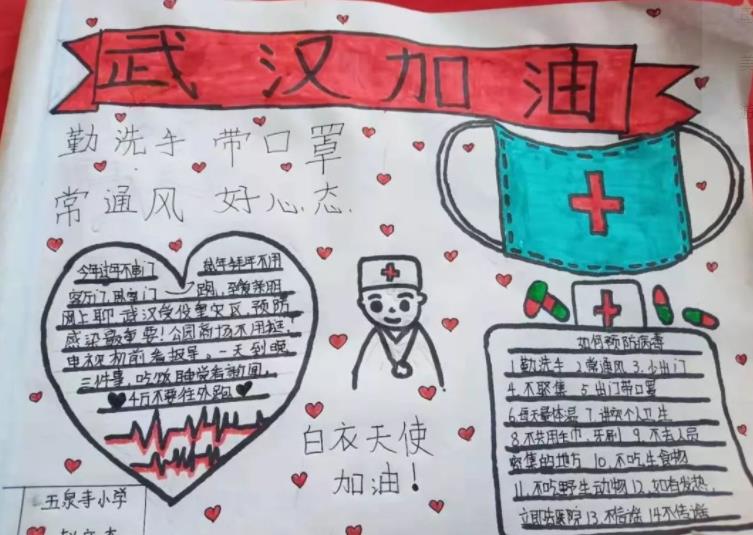 武汉加油
勤洗手 带口罩
常通风 好心态.
今年过年不串门 鼠年拜年不用
跑,至爱亲朋
网上聊 武汉受役重灾区,预防
感染最重要!公园商场不用
电视机前看报导。一天到晚
三件事,吃饭睡觉看新闻,
不要往外跑
白衣天使
加油!
如何预防病毒
1勤洗手 2常通风 3.少出门
4.不聚集 5出门带口罩
6每天量体温 7.讲究个人卫生
8.不共用毛巾,牙刷 9.不去人员
密集的地方 10.不吃生食物
11.不吃野生动物 12.如有发热,
立即去医院 13.不信谣 14不传谣
五泉寺小学